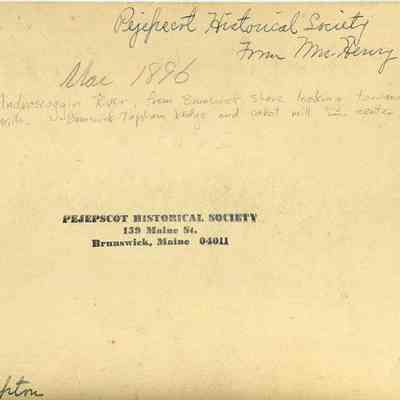 Pejepscot Historical Society
From Mr. Henry
Mar 1896
Androscoggin River, from Brunswick shore looking toward
Brunswick Topsham bridge and cabot mill in center
PEJEPSCOT HISTORICAL SOCIETY
139 Maine St.
Brunswick, Maine 04011
pton